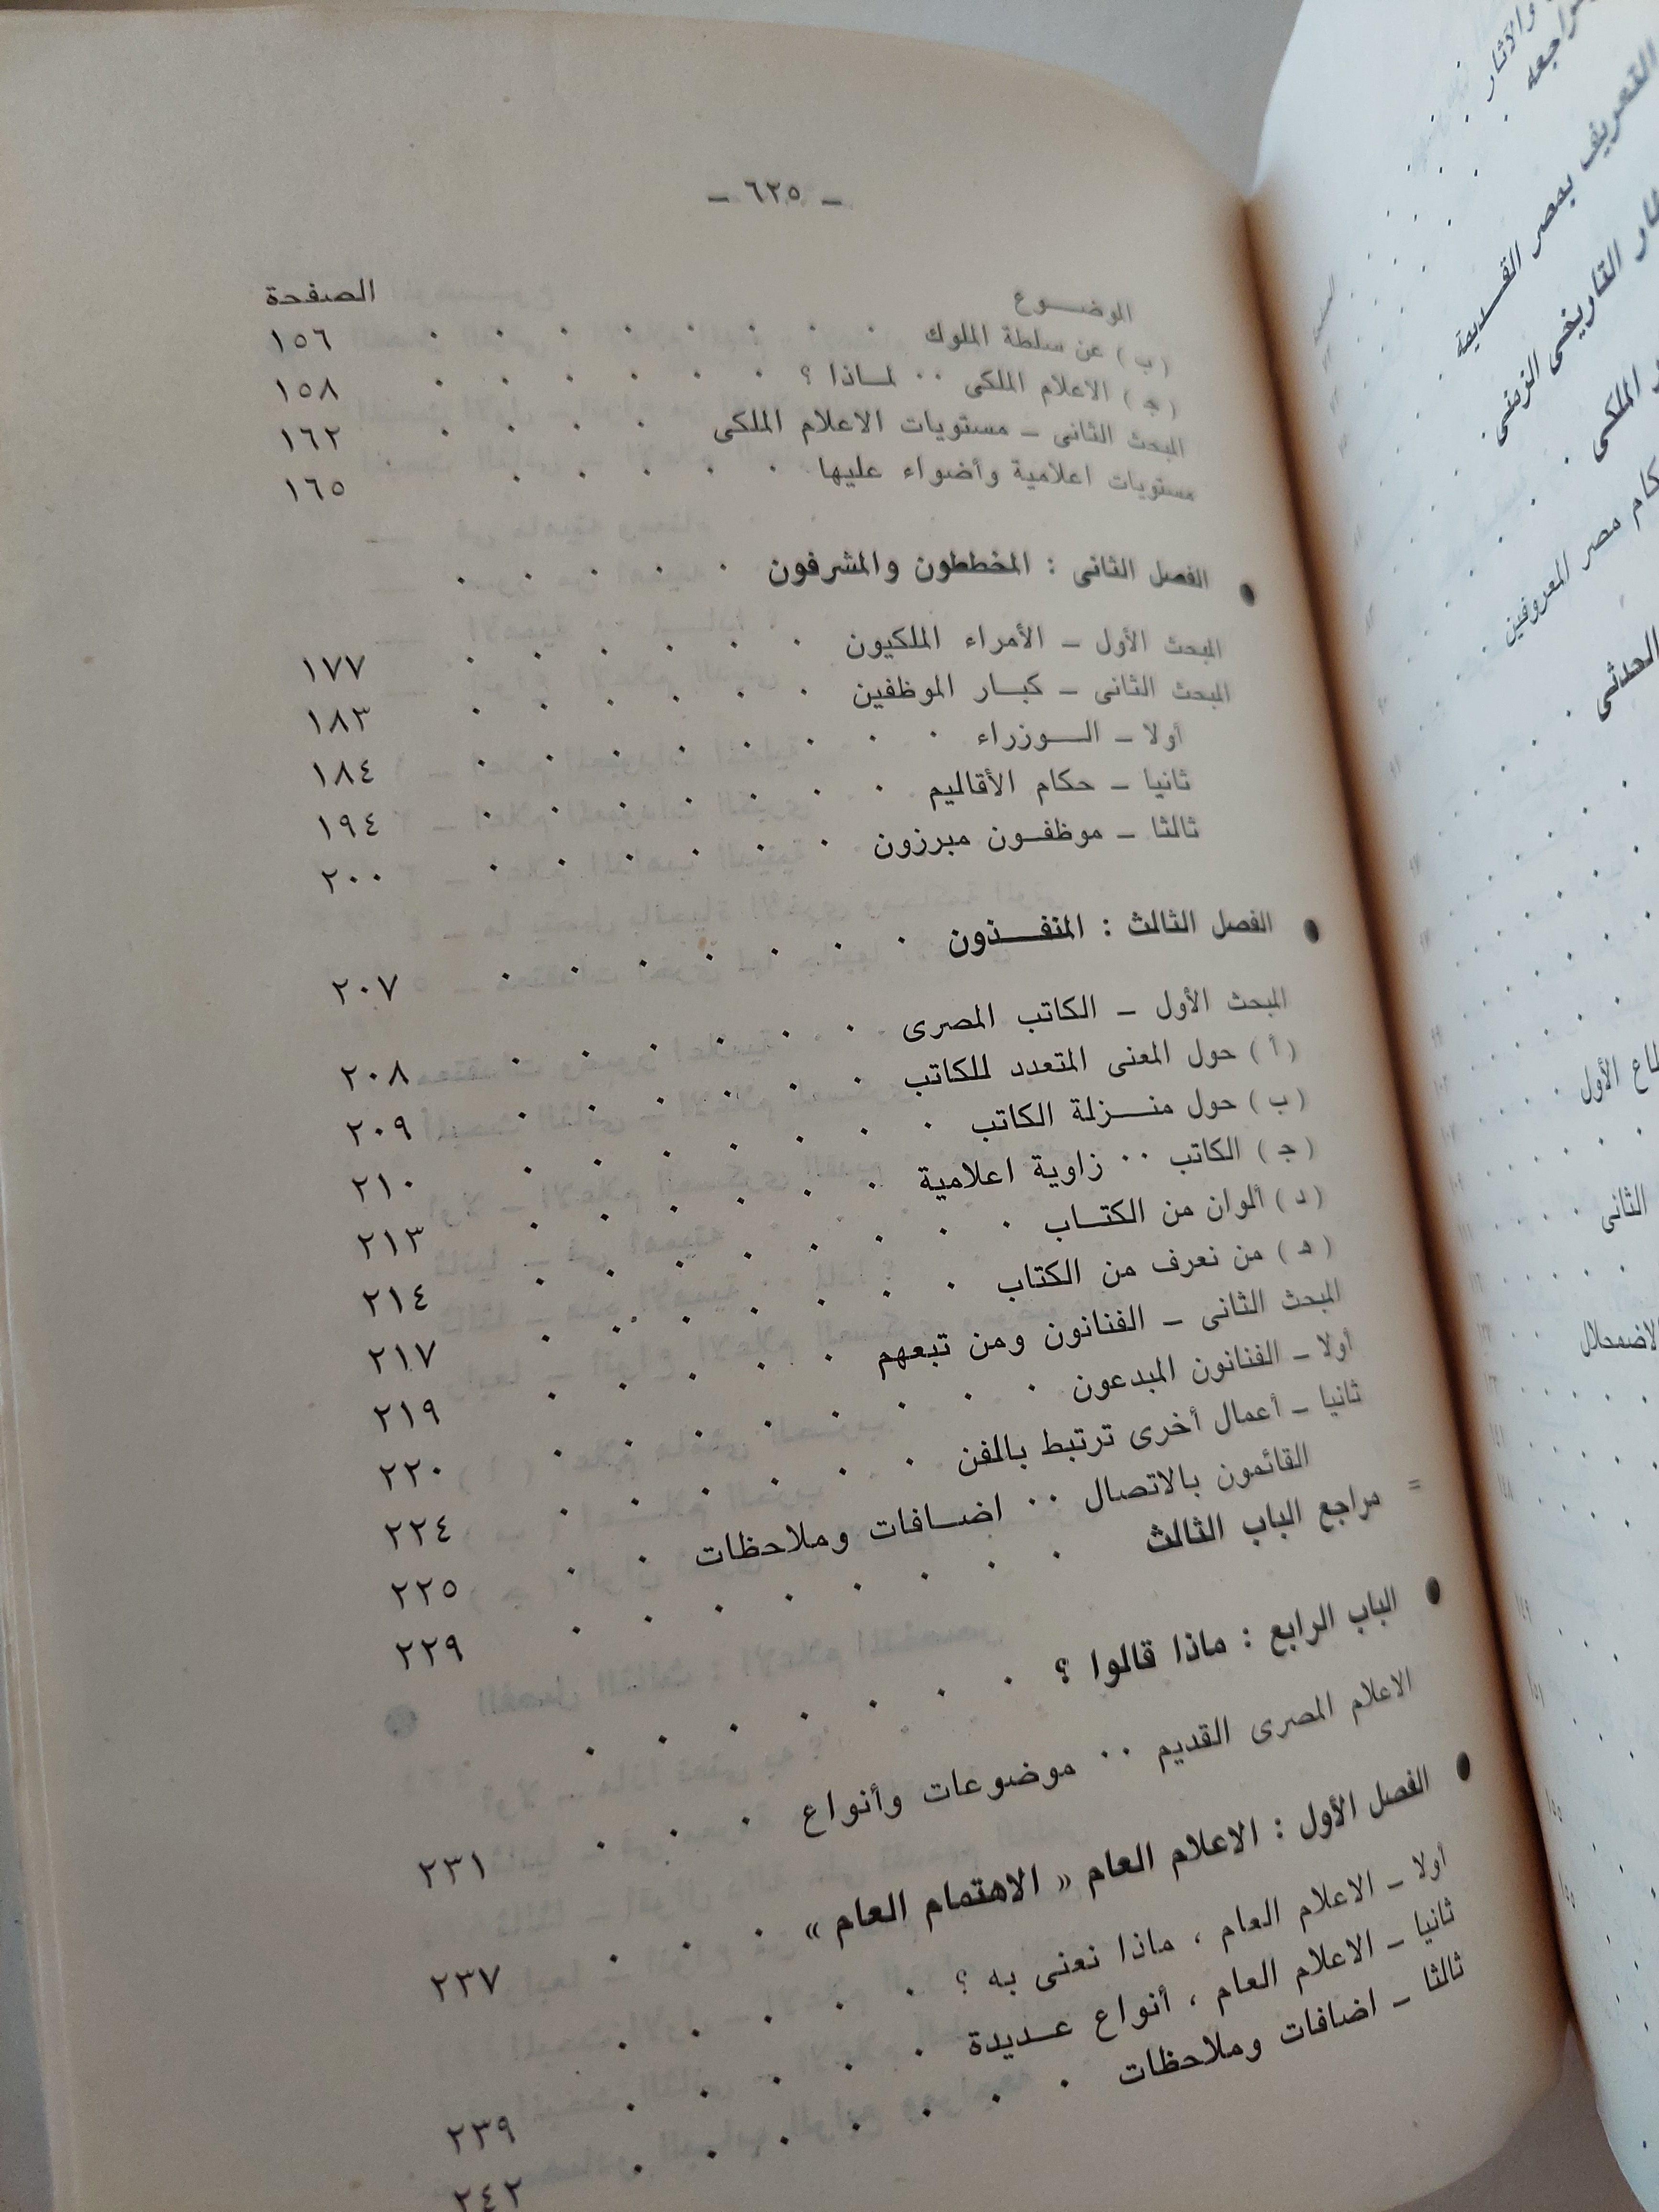 — ٦٢٥ —
الموضـــوع الصفحة
( ب ) عن سلطة الملوك . . . . . . . . ١٥٦
( ج ) الاعلام الملكى ٠٠ لمــاذا ؟ . . . . . . ١٥٨
المبحث الثانى — مستويات الاعلام الملكى . . . . ١٦٢
مستويات اعلامية وأضواء عليها . . . . . ١٦٥
● الفصل الثانى : المخططون والمشرفون . . . . .
المبحث الأول — الأمراء الملكيون . . . . . . ١٧٧
المبحث الثانى — كبــار الموظفين . . . . . . ١٨٣
أولا — الـــوزراء . . . . . . . . ١٨٤
ثانيا — حكام الأقاليم . . . . . . . ١٩٤
ثالثا — موظفــون مبرزون . . . . . . ٢٠٠
● الفصل الثالث : المنفـــذون . . . . . . . ٢٠٧
المبحث الأول — الكاتب المصرى . . . . . . ٢٠٨
( أ ) حول المعنى المتعدد للكاتب . . . . . . ٢٠٩
( ب ) حول منـــزلة الكاتب . . . . . . . ٢١٠
( ج ) الكاتب ٠٠ زاوية اعلامية . . . . . . ٢١٣
( د ) ألوان من الكتــاب . . . . . . . . ٢١٤
( هـ ) من نعرف من الكتاب . . . . . . . ٢١٧
المبحث الثانى — الفنانون ومن تبعهم . . . . . ٢١٩
أولا — الفنانون المبدعون . . . . . . . . ٢٢٠
ثانيا — أعمال أخرى ترتبط بالمفن . . . . . . ٢٢٤
القائمون بالاتصال ٠٠ اضــافات وملاحظات . . ٢٢٥
= مراجع الباب الثالث . . . . . . . . ٢٢٩
● الباب الرابع : ماذا قالوا ؟ . . . . . . .
الاعلام المصرى القديم ٠٠ موضوعات وأنواع . . . ٢٣١
● الفصل الأول : الاعلام العام « الاهتمام العام » . . . ٢٣٧
أولا — الاعلام العام ، ماذا نعنى به ؟ . . . . .
ثانيا — الاعلام العام ، أنواع عــديدة . . . . . ٢٣٩
ثالثا — اضافات وملاحظات . . . . . . . ٢٤٢
والآثار
التعريف بمصر القــديمة
التاريخى الزمنى
الملكى
مصر المعروفين
الحدثى
الأول
الثانى
الاضمحلال